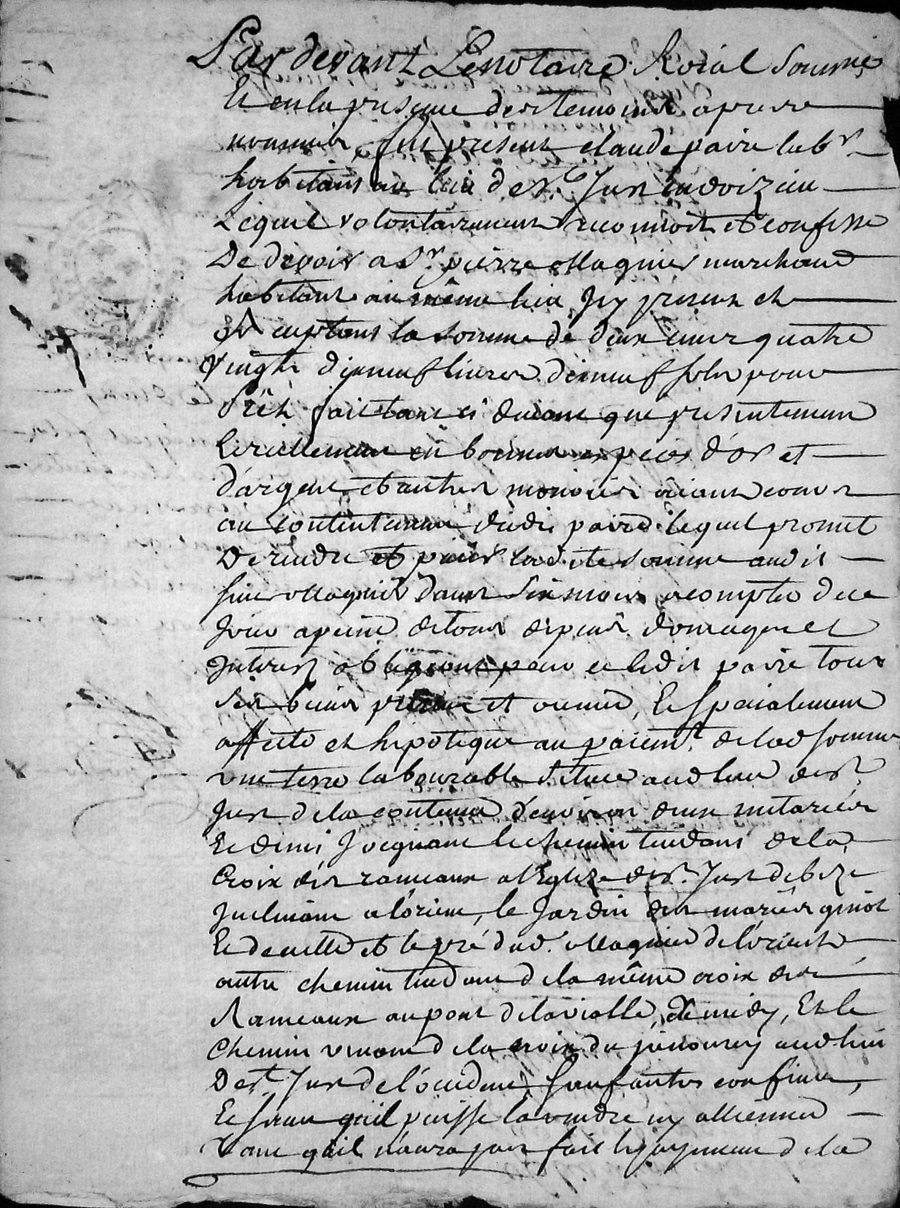 Pardevant Le notaire Roial Soussigné
Et en la presence des temoins apres
nommés, fut present claude paire lab.r
habitant au lieu de S.t Just en doizieu
Lequel volontairement reconnoit et confesse
De devoir a S.r pierre Magnier marchand
habitant au même lieu Icy present et
acceptant la somme de deux cent quatre
vingts dixneuf livres dixneuf sols pour
Prêt fait tant ci devant que presentement
Et reellement en bonnes especes d'or et
d'argent et autres monoies aiant cours
au contentement dudit paire lequel promet
De rendre et paier ladite somme audit
sieur Magnier dans six mois a compter de ce
Jour a peine de tous depens domages et
Interest obligeant pour ce ledit paire tous
ses biens presens et avenir, Et specialement
affecte et hipoteque au paiem.t de lad somme
une terre labourable située aud lieu de S.t
Just de la contenue d'environ deux metarées
Et demi Joignant le chemin tendant de la
Croix des rameaux a l'Eglize de S.t Just de bize
Inclinant a lorient, le Jardin des mariés
Et le pré dud. Magnier de l'orient
autre chemin tendant de la même croix des
Rameaux au pont de la vialle, de midy, Et le
chemin venant de la croix du aud lieu
De S.t Just de l'occident, sauf autres confins,
Et sans quil puisse la vendre ny alliener
Tant qu'il n'aura pas fait le payement de la